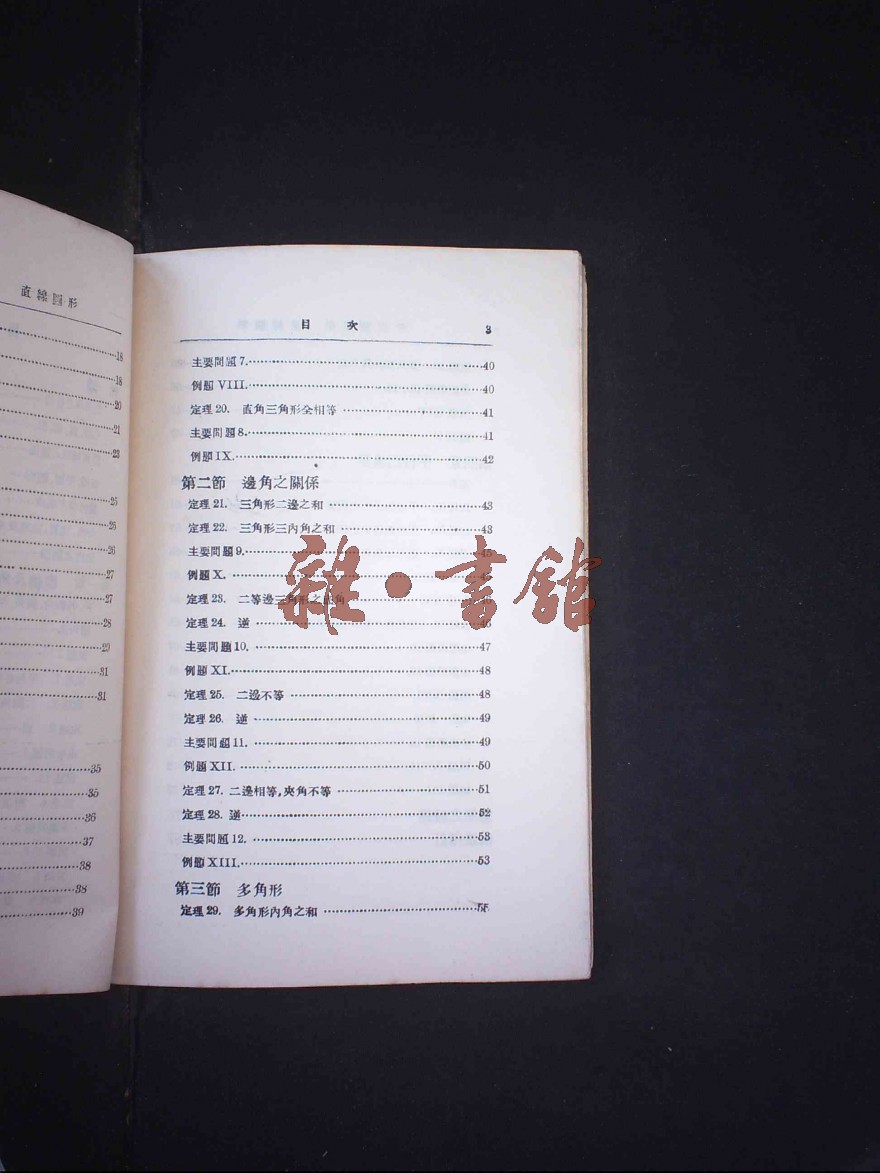 直線圖形
18
18
20
21
23
25
25
26
27
27
28
29
31
31
35
35
36
37
38
38
39
目 次 3
主要問題7. 40
例題 VIII. 40
定理20. 直角三角形全相等 41
主要問題8. 41
例題 IX. 42
第二節 邊角之關係
定理21. 三角形二邊之和 43
定理22. 三角形三內角之和 43
主要問題9. 45
例題 X.
定理23. 二等邊三角形之底角
定理24. 逆 46
主要問題10. 47
例題 XI. 48
定理25. 二邊不等 48
定理26. 逆 49
主要問題11. 49
例題 XII. 50
定理27. 二邊相等,夾角不等 51
定理28. 逆 52
主要問題12. 53
例題 XIII. 53
第三節 多角形
定理29. 多角形內角之和 55
雜·書館